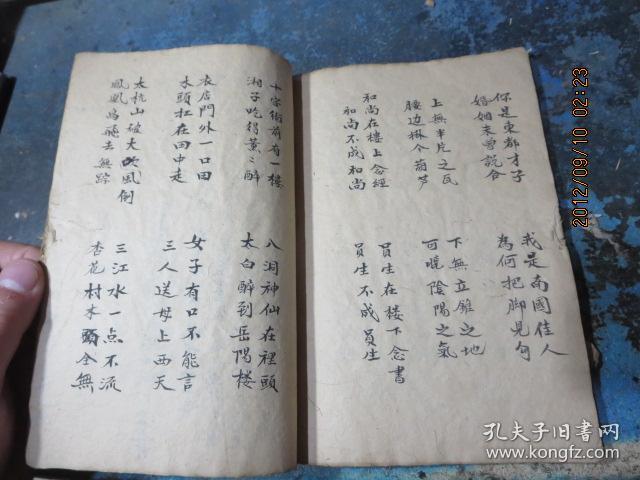 你是東都才子
婚姻未曾說合
我是南國佳人
為何把脚見勾
上無半片之瓦
腰边掛个葫芦
下無立錐之地
可曉陰陽之气
和尚在樓上念經
和尚不成和尚
員生在楼下念書
員生不成員生
十字街前有一楼
湘子吃得薰之醉
八洞神仙在裡頭
太白醉到岳陽楼
衣店門外一口田
木頭杠在田中走
女子有口不能言
三人送母上西天
太杭山破大吹風倒
鳳凰鳥飛去無踪
三江水一点不流
杏花村木頭全無
2012/09/10 02:23
孔夫子旧書网